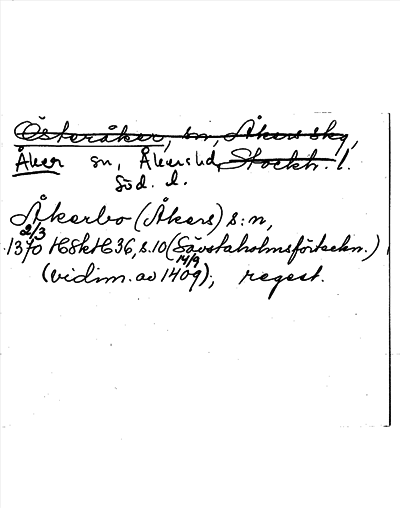 Österåker, sn, Åkers sky,
Åker sn, Åkers hd, Stockh. l.
Söd. l.
Åkerbo (Åkers) s:n,
2/3
1370 HSkH 36, s. 10 (Säfstaholmsförteckn.)
14/9
(vidim. av 1409), regest.